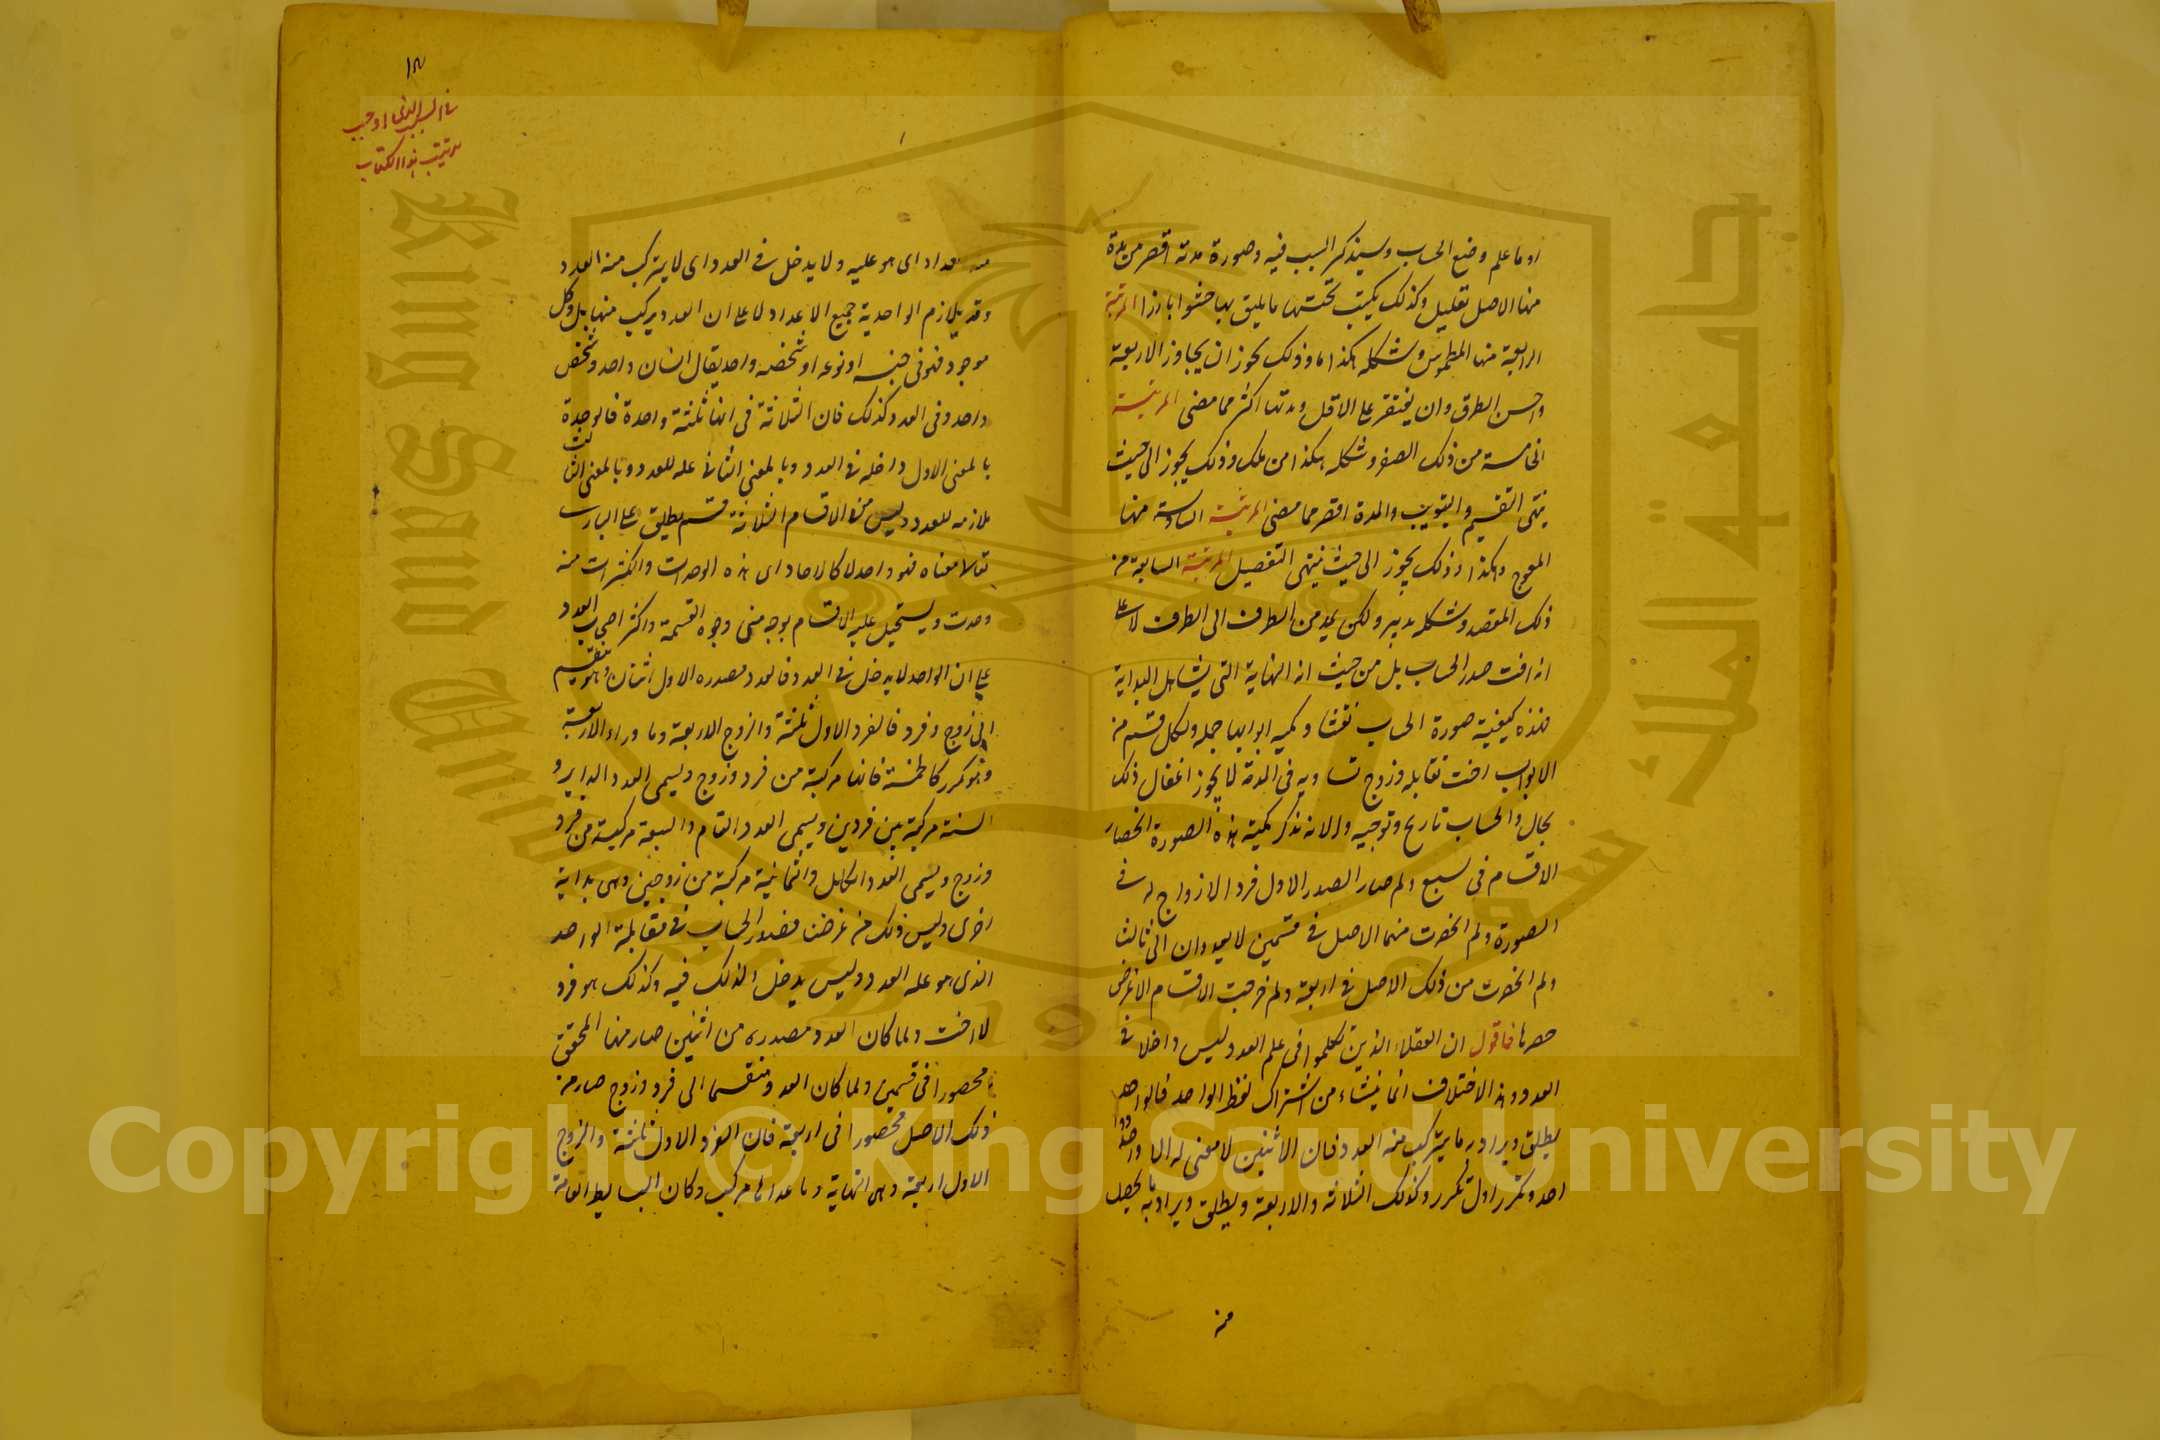 او ما علم وضع الحساب وسيذكر السبب فيه وصورة مدته اقصر من مدة
منها الاصل تقليل وكذلك يكتب تحتها ما يليق بها حشوا بارزا المرتبة
الرابعة منها المطموس وشكله هكذا ما وذلك يجوز ان يجاوز الاربعة
واحسن الطرق وان يفتقر على الاقل ومدتها اكثر مما مضى المرتبة
الخامسة من ذلك الصفر وشكله هكذا من ملك وذلك يجوز الى حيث
ينتهى التقسيم والتبويب والمدة اقصر مما مضى المرتبة السادسة منها
المعوج وهكذا د وذلك يجوز الى حيث ينتهى التفصيل المرتبة السابعة من
ذلك المقصد وشكله مدير ولكن يمد من الطرف الى الطرف لا على
انه اخت صدر الحساب بل من حيث انه النهاية التى يشاكل البداية
فهذه كيفية صورة الحساب نقشا وكمية ابوابها جملة ولكل قسم من
الابواب اخت تقابله وزوج تساويه فى المدة لا يجوز اغفال ذلك
بحال والحساب تاريخ وتوجيه والانه نذكر كمية هذه الصورة انحصار
الاقسام فى سبع ولم صار الصدر الاول فرد الازواج له فى
الصورة ولم انحصرت منها الاصل فى قسمين لا يعدوان الى ثالث
ولم انحصرت من ذلك الاصل فى اربعة ولم خرجت الاقسام الاخر عن
حصرها فاقول ان العقلاء الذين تكلموا فى علم العدد ليس داخلا فى
العدد وهذا الاختلاف انما ينشاء من اشتراك لفظ الواحد فالواحد
يطلق ويراد به ما يتركب منه العدد فان الاثنين لا معنى له الا واحد
احد وتكرر اول تكرر وكذلك الثلاثة والاربعة ويطلق ويراد به ما يحصل
منه
١٨
فى السبب الذى اوجب
ترتيب هذا الكتاب
منه عدد اى هو عليه ولا يدخل فى العدد اى لا يتركب منه العدد
وقد يلازم الواحدية جميع الاعداد لا على ان العدد يركب منها بل وكل
موجود فهو فى جنسه او نوعه او شخصه واحد يقال انسان واحد وشخص
واحد وفى العدد كذلك فان الثلاثة فى انها ثلثة واحدة فالوحدة
بالمعنى الاول داخلة فى العدد وبالمعنى الثانى علة للعدد وبالمعنى الثالث
ملازمة للعدد وليس من الاقسام الثلاثة قسم يطلق على البارى
تعالى معناه فهو واحد لا كالاحاد اى هذه الوحدات والكثرات منه
وحدت ويستحيل عليه الانقسام بوجه من وجوه القسمة واكثر اصحاب العدد
على ان الواحد لا يدخل فى العدد فالعدد مصدره الاول اثنان وهو ينقسم
الى زوج وفرد فالفرد الاول ثلثة والزوج الاربعة وما وراء الاربعة
فهو مكرر كالخمسة فانها مركبة من فرد وزوج ويسمى العدد الداير و
الستة مركبة بين فردين ويسمى العدد التام والسبعة مركبة من فرد
وزوج ويسمى العدد الكامل والثمانية مركبة من زوجين وهى بداية
اخرى وليس ذلك من غرضنا فصدر الحساب فى مقابلة الواحد
الذى هو علة العدد وليس يدخل الذلك فيه وكذلك هو فرد
لا اخت ولما كان العدد مصدره من اثنين صار منها المحقق
محصورا فى قسمين ولما كان العدد منقسما الى فرد وزوج صار من
ذلك الاصل محصورا فى اربعة فان الفرد الاول ثلثة والزوج
الاول اربعة وهى النهاية وما عداها مركب وكان البسايط العامة
جامعة الملك سعود
King Saud University
1957
Copyright © King Saud University